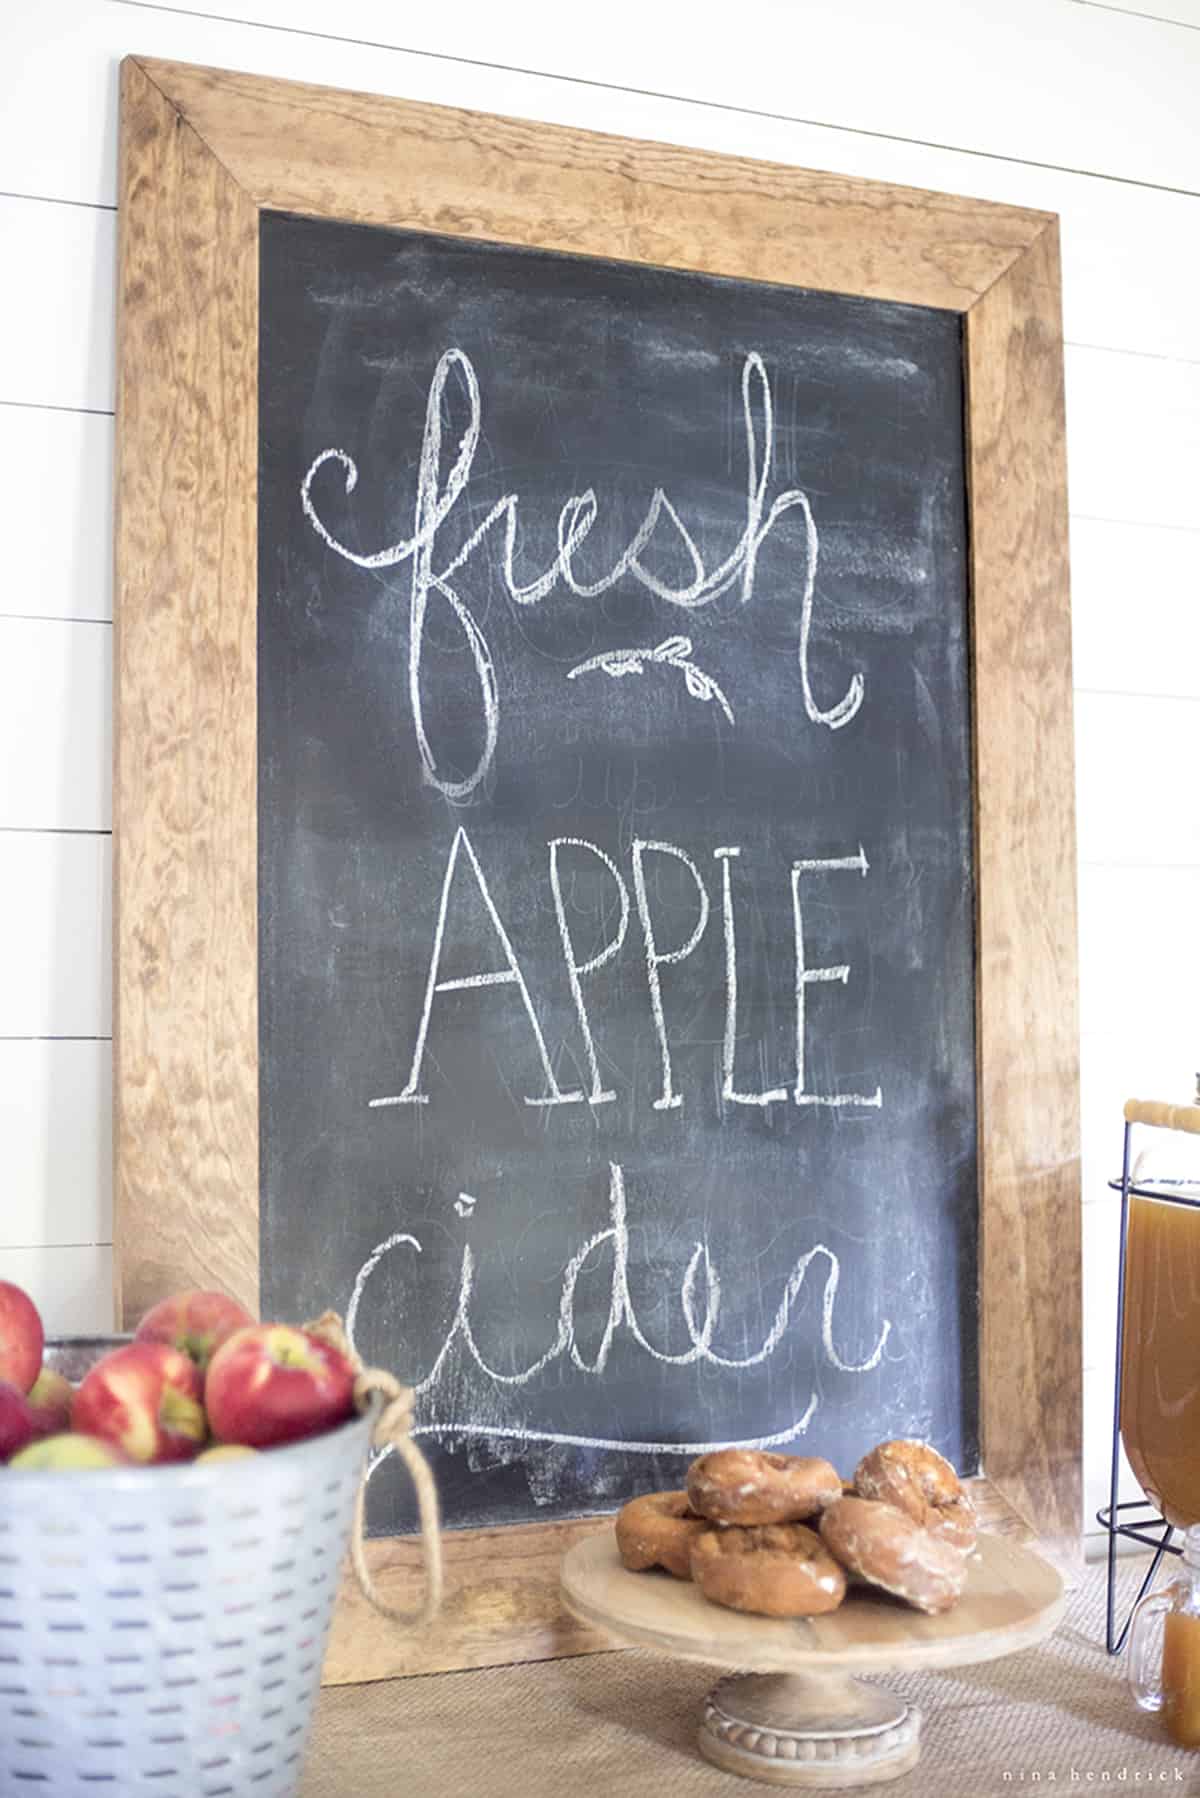 fresh
APPLE
cider
nina hendrick